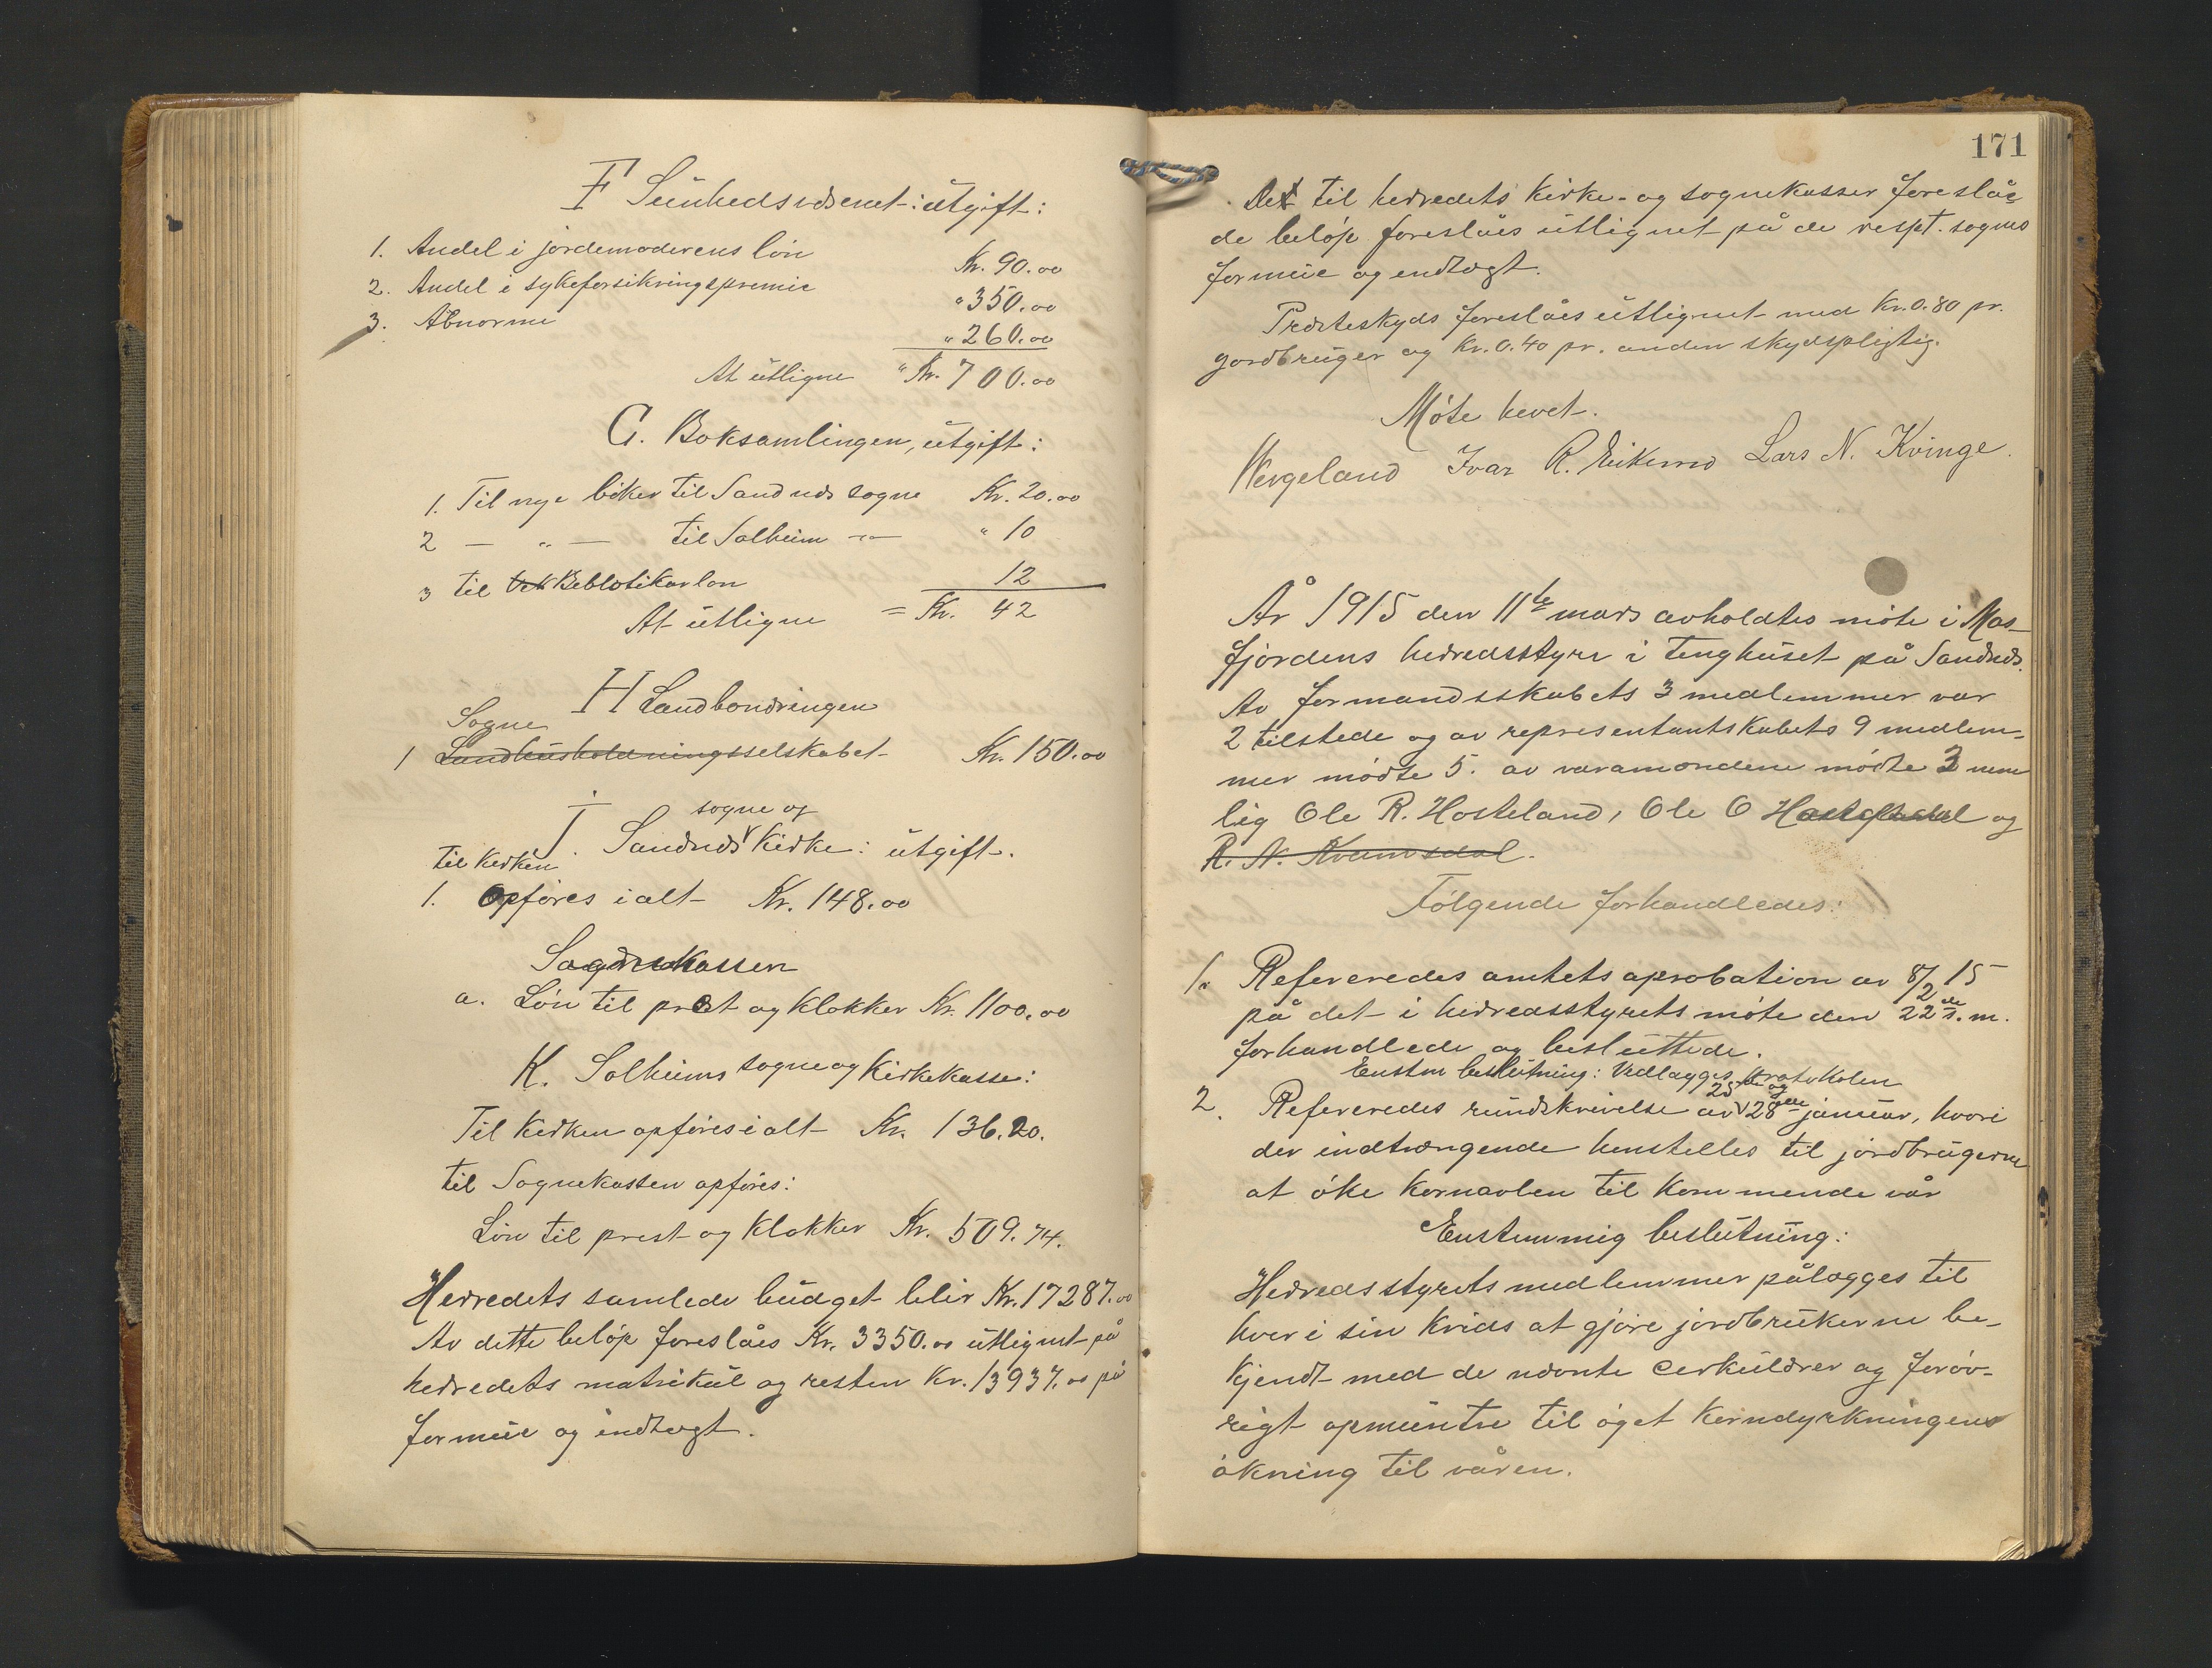 F Sunhedsvæsenet: utgift:
1. Andel i jordemoderens løn Kr. 90.00
2. Andel i sykeforsikringspremie " 350.00
3. Abnorme " 260.00
At utligne " Kr. 700.00
G. Boksamlingen, utgift:
1. Til nye bøker til Sandnæs sogne Kr. 20.00
2 — " — til Solheim —"— " 10
3 til Beblotikarløn 12
At utligne = Kr. 42
H Landbondringen
Sogne
1 Landhusholdningsselskabet Kr. 150.00
sogne og
I. Sandnæs kirke: utgift.
til kirken
1. Opføres ialt Kr. 148.00
Sognekassen
a. Løn til prest og klokker Kr. 1100.00
K. Solheims sogne og Kirkekasse:
Til kirken opføres ialt Kr. 136.20.
til Sognekassen opføres:
Løn til prest og klokker Kr. 509.74.
Herredets samlede budget blir Kr. 17287.00
Av dette beløp foreslåes Kr. 3350.00 utlignet på
herredets matrikul og resten Kr. 13937.00 på
formue og indtægt.
171
Det til herredets kirke- og sognekasser foreslåe
de beløp foreslåes utlignet på de respt. sognes
formue og endtægt.
Præsteskyds foreslåes utlignet med Kr. 0.80 pr.
gordbruger og Kr. 0.40 pr. anden skydspligtig.
Møte hevet.
Wergeland Ivar R. Eikemo Lars N. Kvinge.
År 1915 den 11te mars avholdtes møte i Mas-
fjordens herredsstyre i tinghuset på Sandnæs.
Av formandsskabets 3 medlemmer var
2 tilstede og av representantskabets 9 medlem-
mer mødte 5. av varamændene mødte 3 nem
lig Ole R. Hosteland, Ole O og
R. N. Kvamsdal.
Følgende forhandledes:
1. Refereredes amtets aprobation av 8/2 15
på det i herredsstyrets møte den 22de s. m.
forhandlede og besluttede.
Enstm beslutning: Vedlagges protokolen
25 og
2. Refereredes rundskrivelse av 28de januar, hvori
der indtrængende henstilles til jordbrugerne
at øke kornavlen til kommende vår
Enstemmig beslutning:
Herredsstyrets medlemmer pålægges til
hver i sin kreds at gjøre jordbrukerne be-
kjendt med de nævnte cerkulærer og forøv-
rigt opmuntre til øget korndyrkningens
økning til våren.